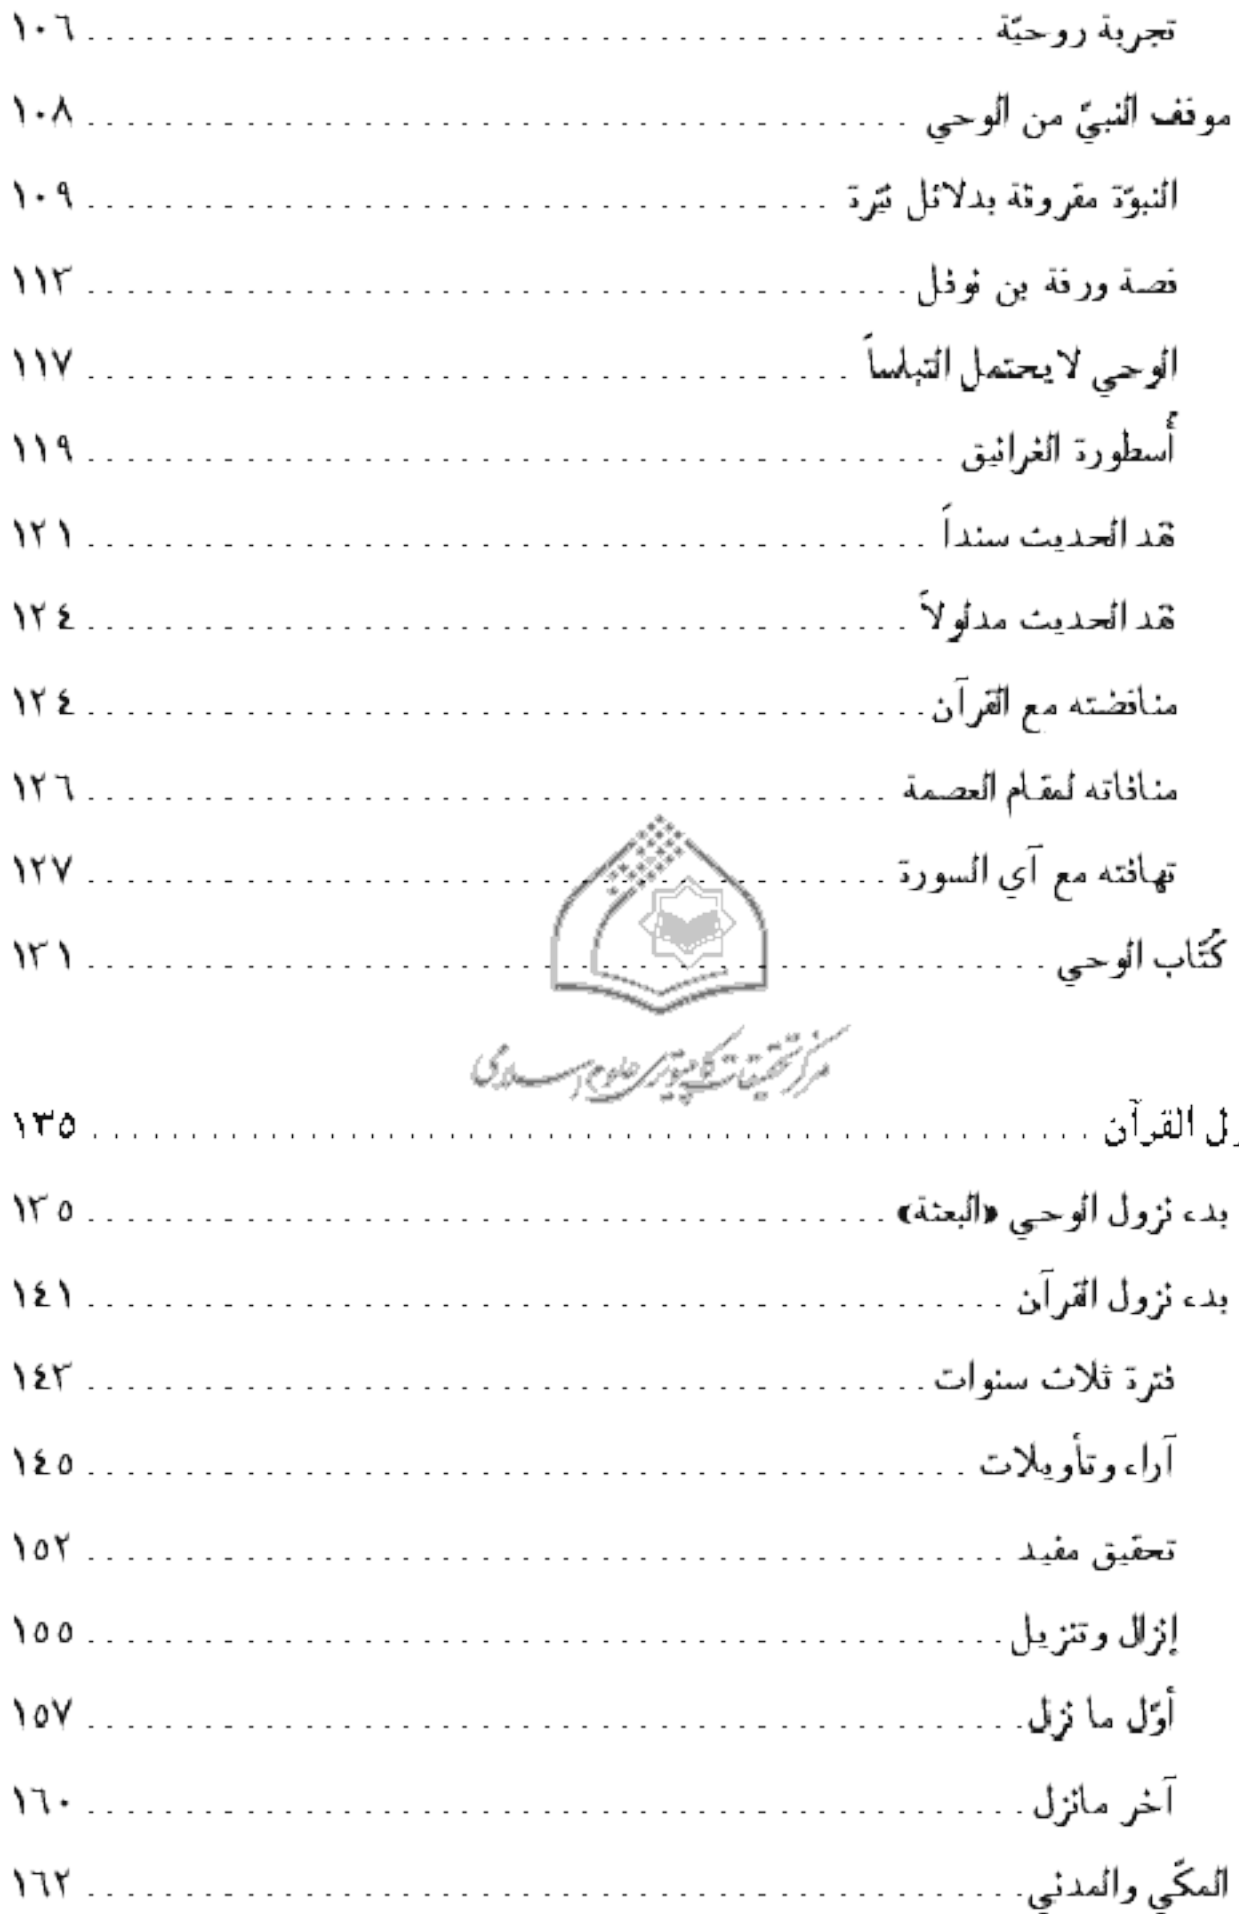 تجربة روحيّة ........ ١٠٦
موقف النبيّ من الوحي ........ ١٠٨
النبوّة مقرونة بدلائل نيّرة ........ ١٠٩
قصة ورقة بن نوفل ........ ١١٣
الوحي لا يحتمل التباساً ........ ١١٧
أُسطورة الغرانيق ........ ١١٩
نقد الحديث سنداً ........ ١٢١
نقد الحديث مدلولاً ........ ١٢٤
مناقضته مع القرآن ........ ١٢٤
منافاته لمقام العصمة ........ ١٢٦
تهافته مع آي السورة ........ ١٢٧
كُتّاب الوحي ........ ١٣١
مرکز تحقیقات کامپیوتری علوم اسلامی
القرآن ........ ١٣٥
بدء نزول الوحي «البعثة» ........ ١٣٥
بدء نزول القرآن ........ ١٤١
فترة ثلاث سنوات ........ ١٤٣
آراء وتأويلات ........ ١٤٥
تحقيق مفيد ........ ١٥٢
إنزال وتنزيل ........ ١٥٥
أوّل ما نزل ........ ١٥٧
آخر مانزل ........ ١٦٠
المكّي والمدني ........ ١٦٢